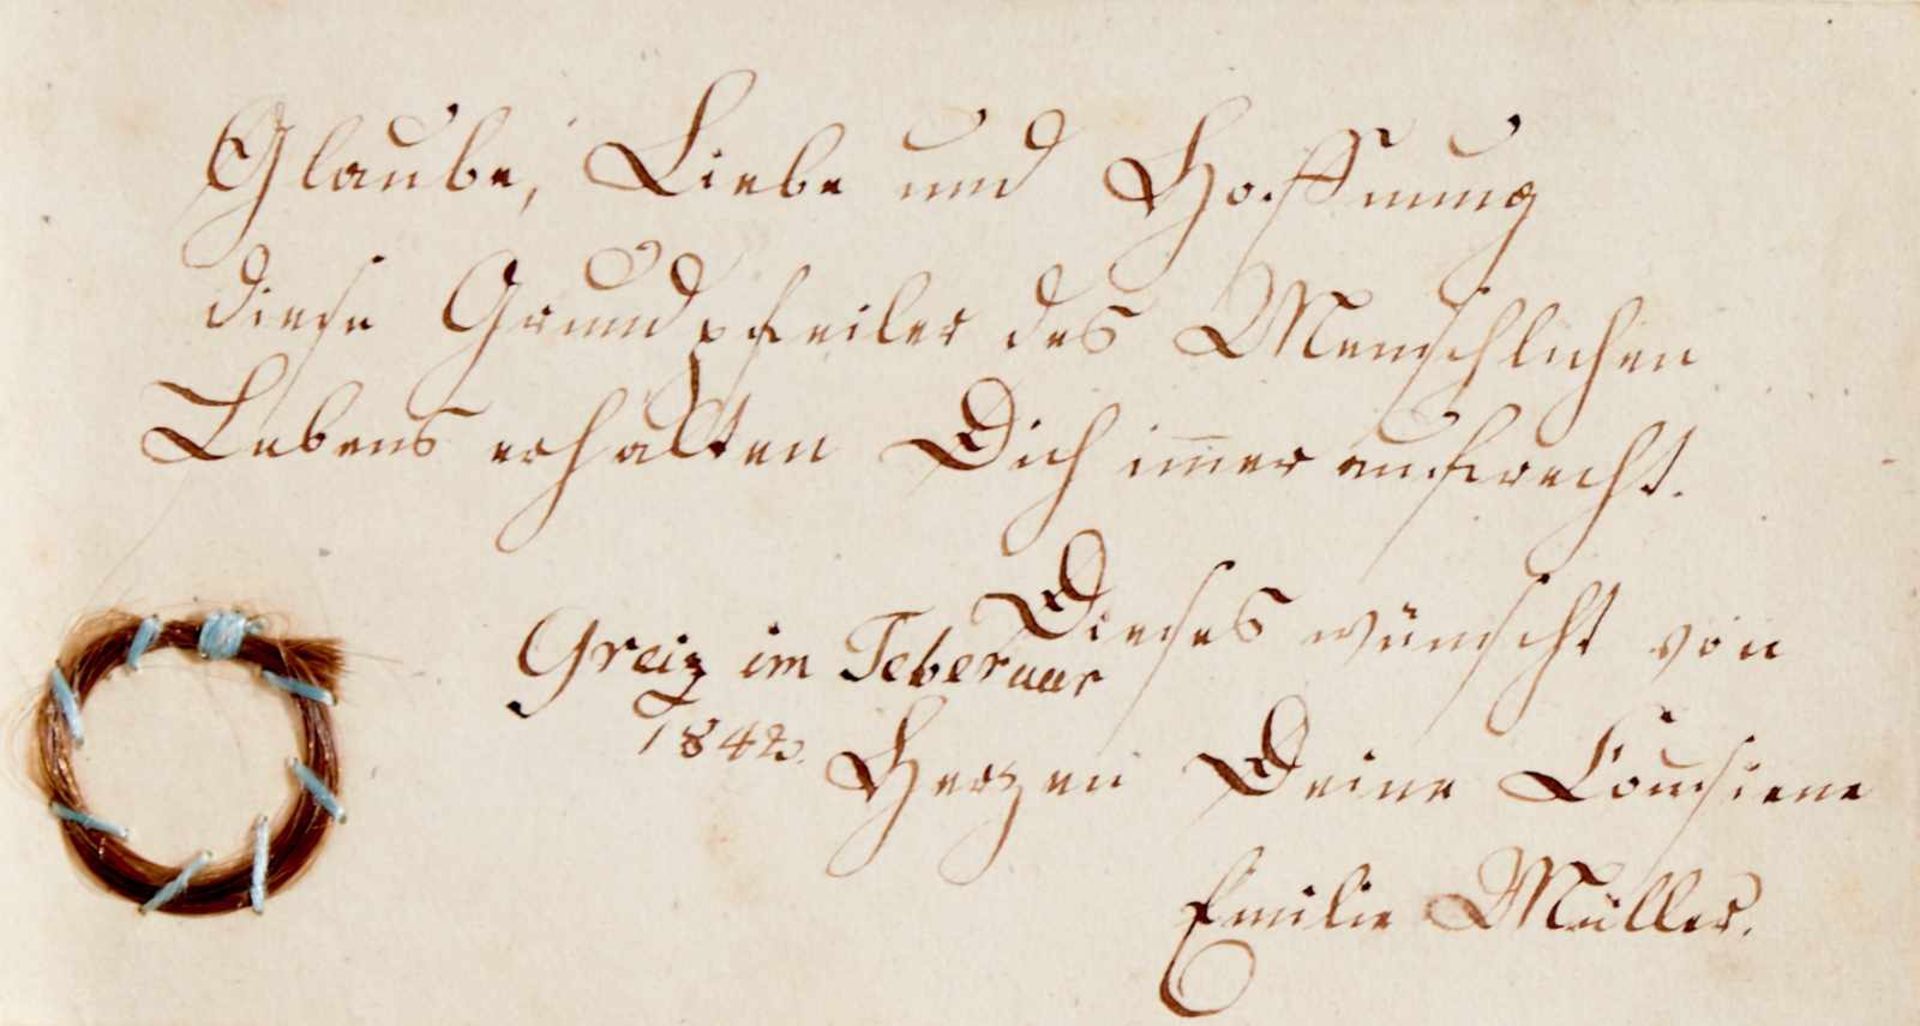 Glaube, Liebe und Hoffnung
diese Grundpfeiler des Menschlichen
Lebens erhalten Dich im̅er aufrecht.
Dieses wünscht von
Greiz im Feberuar
1842.
Herzen Deine Cousiene
Emilie Müller.